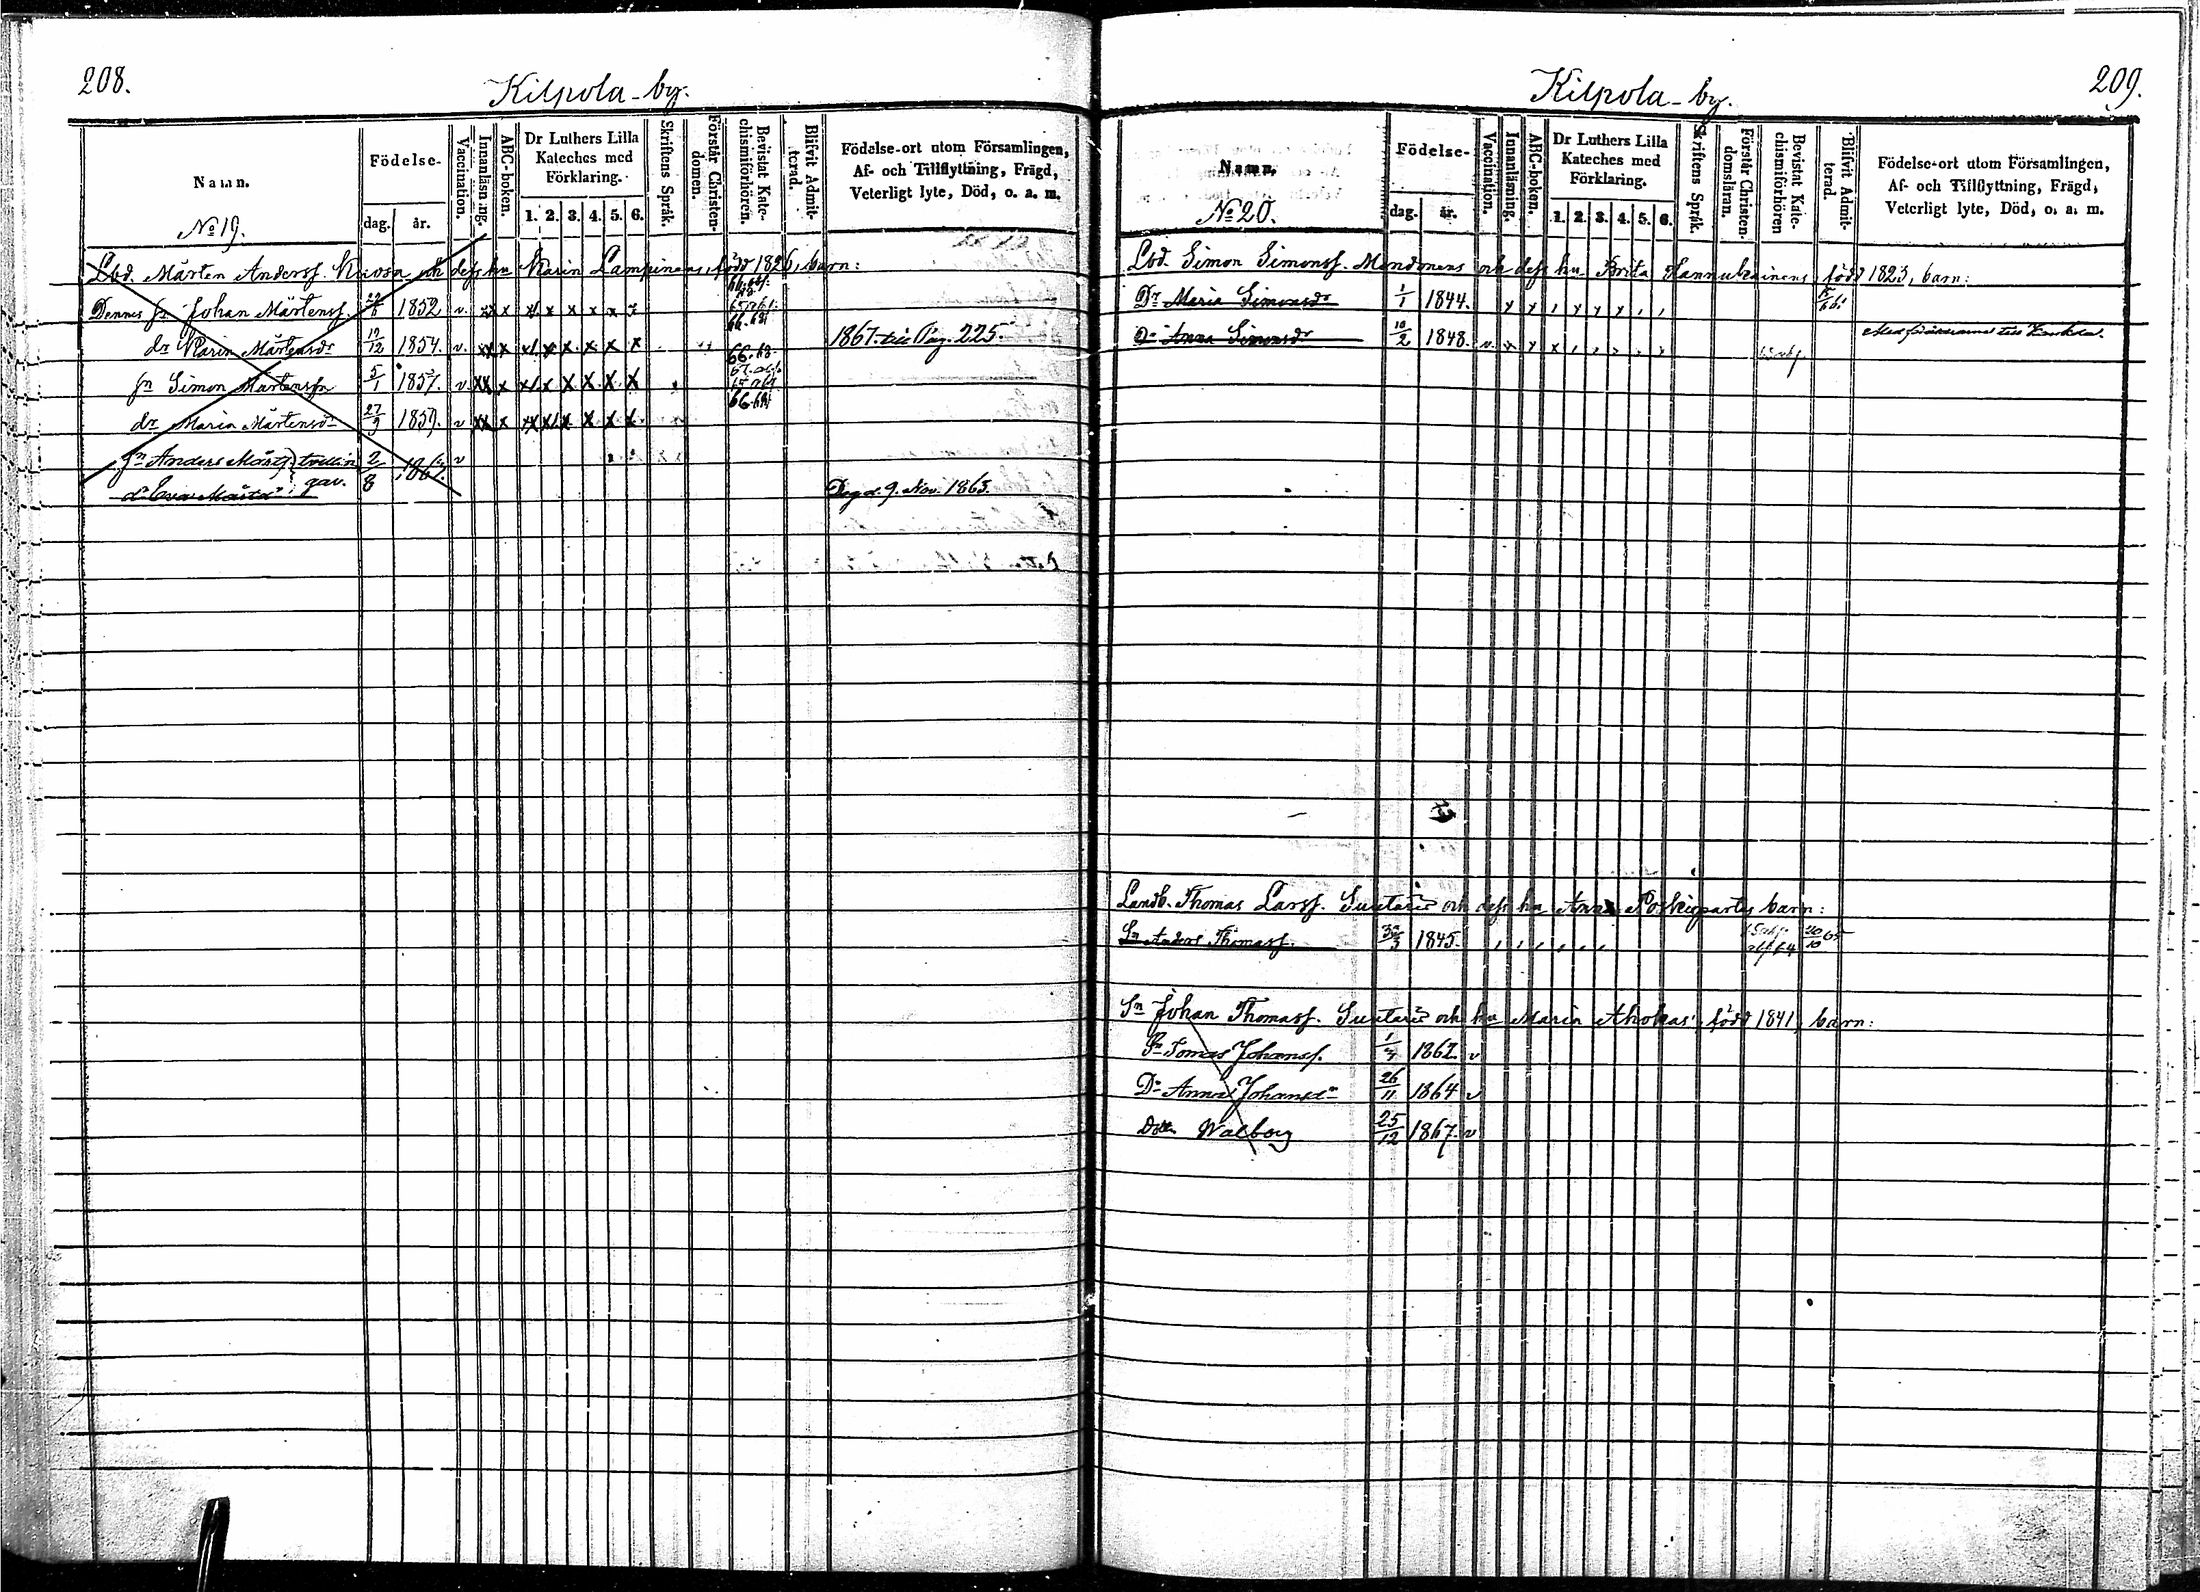 208.
Kilpola-by.
Namn.
No 19.
Födelse-
dag.
år.
Vaccination.
Innanläsning.
ABC-boken.
Dr Luthers Lilla
Kateches med
Förklaring.
1. 2. 3. 4. 5. 6.
Skriftens Språk.
Förstår Christen-
domen.
Bevistat Kate-
chismiförhören.
Blifvit Admit-
terad.
Födelse-ort utom Församlingen,
Af- och Tillflyttning, Frägd,
Veterligt lyte, Död, o. a. m.
Lbd. Mårten Anderss. Kuosa och dess hu Karin Lampinens, född 1826, barn:
Dennes sn Johan Mårtenss. 1852 v. x x x x x x x
dr Karin Mårtensdr 19/12 1854. v. xx x x x x x x x 1867. till Pag. 225.
sn Simon Mårtenssn 5/1 1857. v. xx x x x x x x x
dr Maria Mårtensdr 27/9 1859. v xx x x x x x x x
sn Anders Mårts. tvillin 2/8 186 v
dr Eva Märtd gar. Dog d. 9. Nov. 1863.
209.
Kilpola-by.
Namn.
No 20.
Födelse-
dag.
år.
Vaccination.
Innanläsning.
ABC-boken.
Dr Luthers Lilla
Kateches med
Förklaring.
1. 2. 3. 4. 5. 6.
Skriftens Språk.
Förstår Christen-
domsläran.
Bevistat Kate-
chismiförhören
Blifvit Admit-
terad.
Födelse-ort utom Församlingen,
Af- och Tillflyttning, Frägd,
Veterligt lyte, Död, o. a. m.
Lbd. Simon Simonss. Mondonens och dess hu Brita Hannukainens, född 1823, barn:
Dr Maria Simonsdr 1/1 1844.
Dr Anna Simonsdr 10/2 1848. v Med föräldrarne till
Landb. Thomas Larss. Suutaris och dess hu Anna Porkipartes barn:
Sn Anders Thomass. 30/3 1845.
Sn Johan Thomass. Suutaris och hu Maria Ahokas, född 1841, barn:
Sn Tomas Johanss. 1862. v
Dr Anna Johansdr 26/11 1864 v
Dottr. Walborg 25/12 1867. v